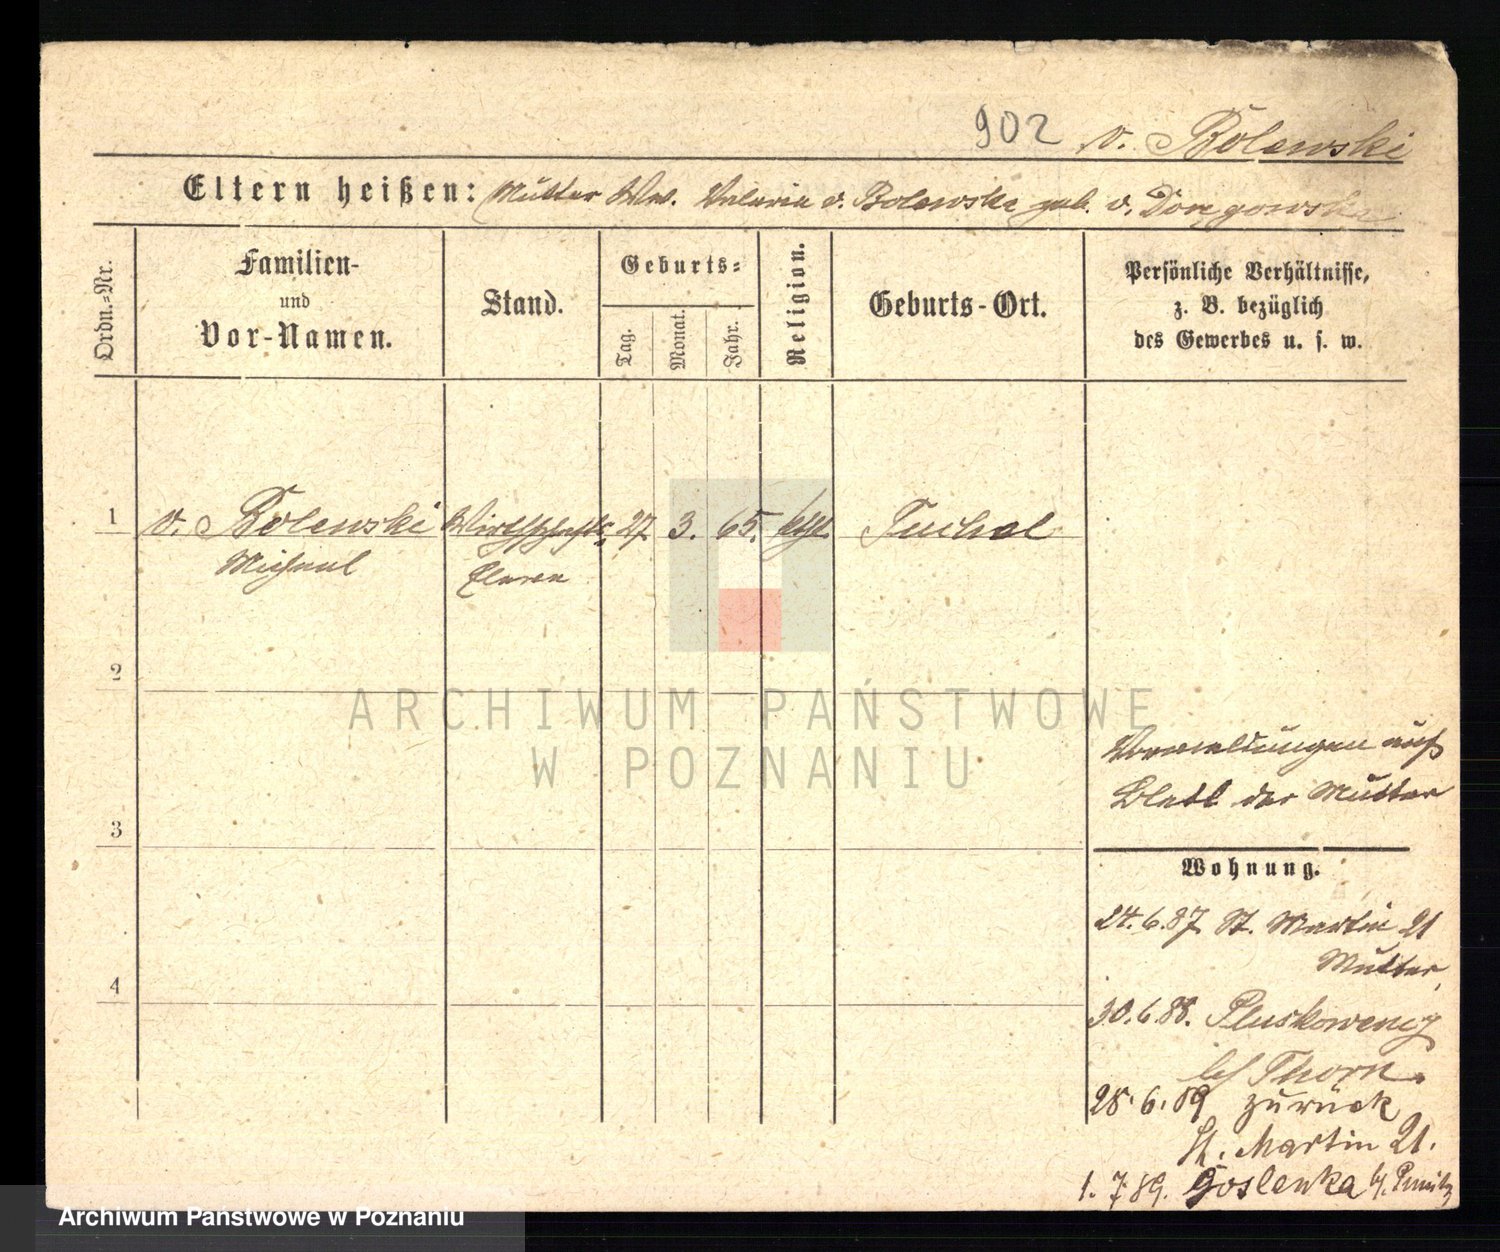 902 v. Bolewski
Eltern heißen: Mutter Ww. Valeria v. Bolewska geb. v. Dorngowska
Ordn.=Nr.
Familien-
und
Vor-Namen.
Stand.
Geburts=
Tag.
Monat.
Jahr.
Religion.
Geburts-Ort.
Persönliche Verhältnisse,
z. B. bezüglich
des Gewerbes u. s. w.
1 v. Bolewski Wirthschafts= 27. 3. 65. kthl. Tuchel
Michael Eleven
2
ARCHIWUM PAŃSTWOWE
W POZNANIU
auf
Blatt der Mutter
3
Wohnung.
24.6.87 St. Martin 21
Mutter,
4
30.6.88. Pluskowenz
bei Thorn.
28.6.89 zurück
St. Martin 21.
1.7.89. Goslenka
Archiwum Państwowe w Poznaniu